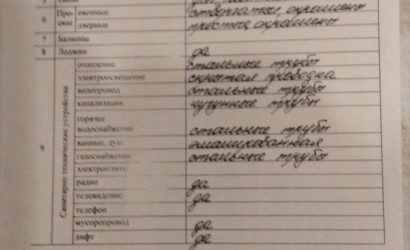 6 Про- емы оконные створчатые, окрашены
дверные простые, окрашены
7 Балконы
8 Лоджии да
9 Санитарно технические устройства
отопление стальные трубы
электроосвещение скрытая проводка
водопровод стальные трубы
канализация чугунные трубы
горячее
водоснабжение стальные трубы
ванные, душ эмалированная
газоснабжение стальные трубы
электроплиты
радио да
телевидение да
телефон
мусоропровод да
лифт да